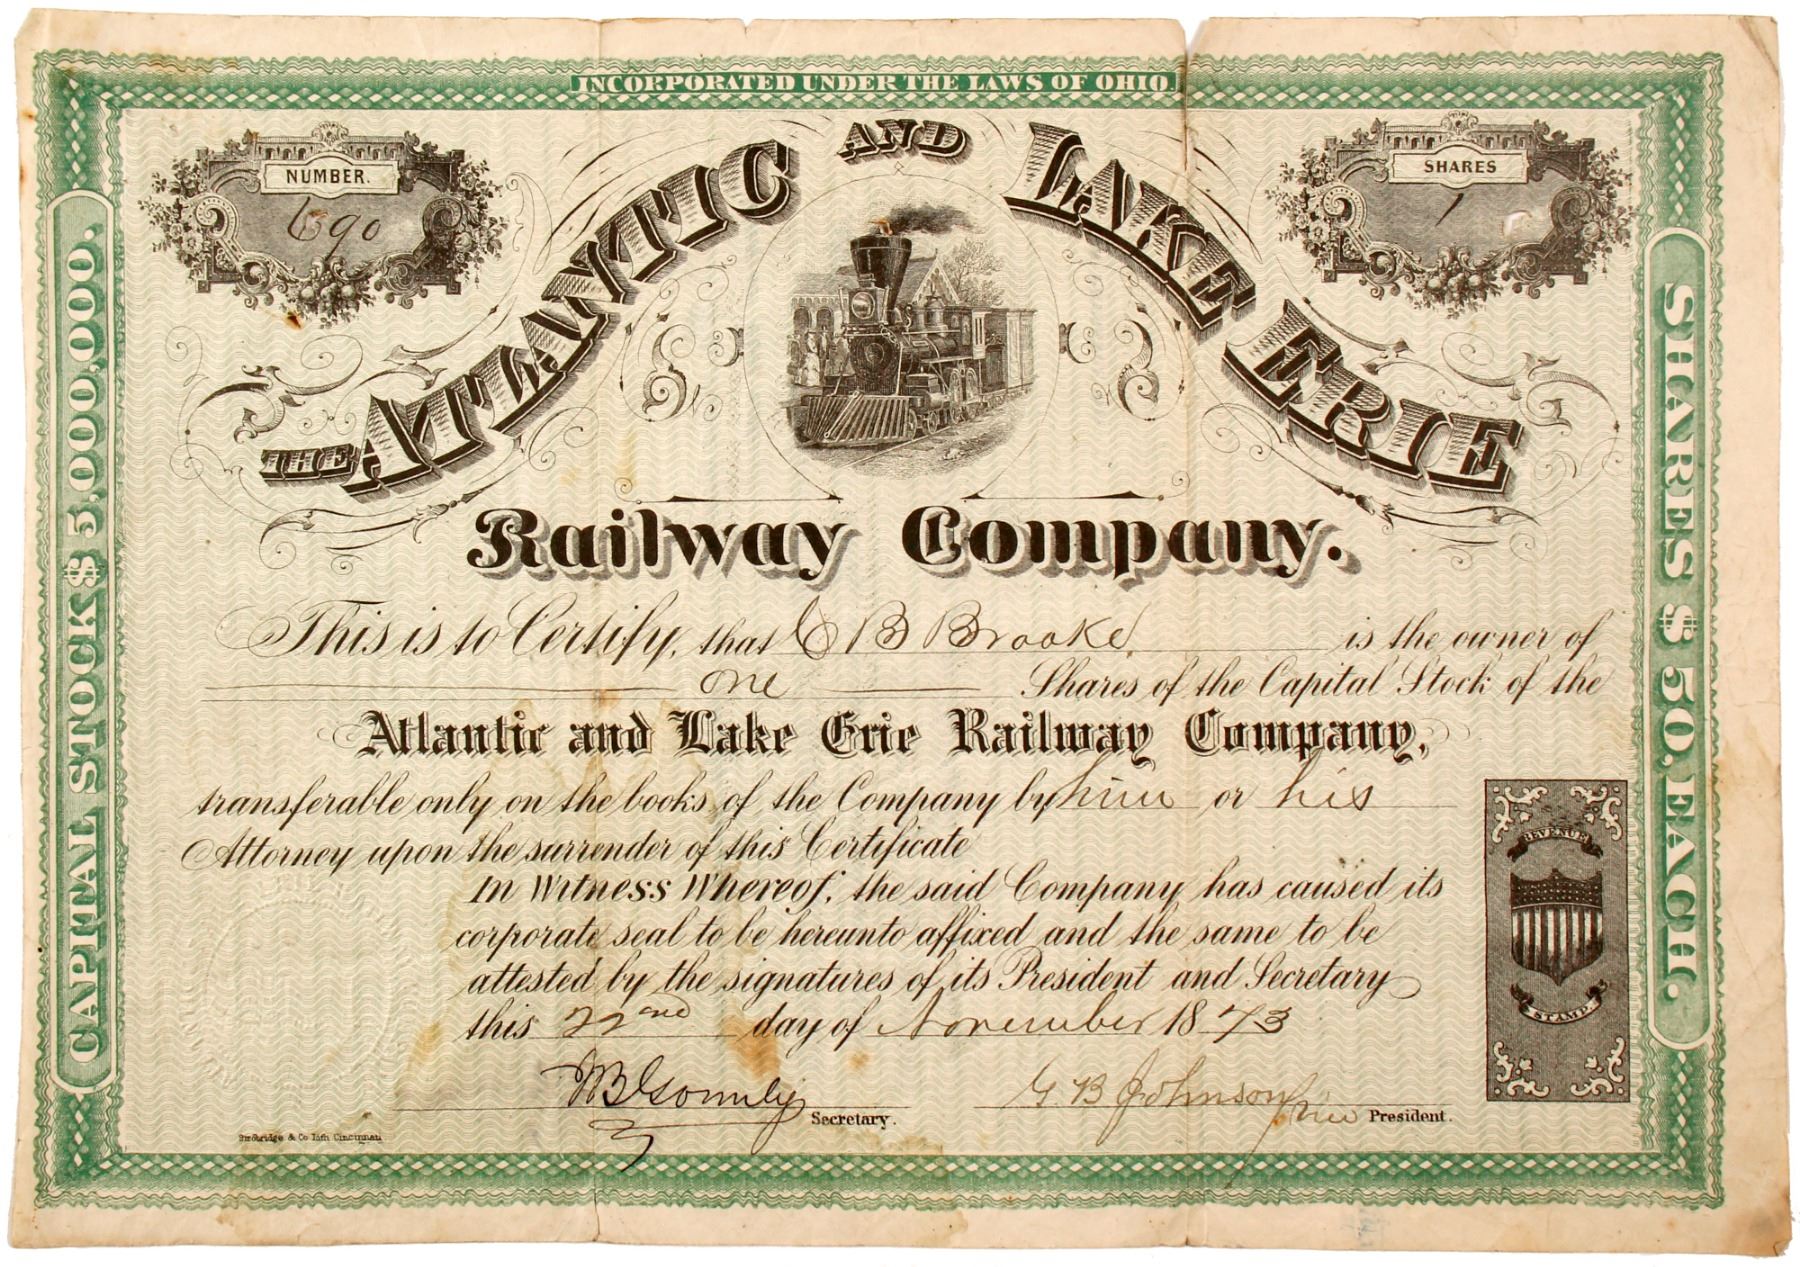 INCORPORATED UNDER THE LAWS OF OHIO.
NUMBER.
690
SHARES
1
THE ATLANTIC AND LAKE ERIE
Railway Company.
CAPITAL STOCK $5,000,000.
SHARES $50. EACH.
This is to Certify, that C B Brooke is the owner of
one Shares of the Capital Stock of the
Atlantic and Lake Erie Railway Company,
transferable only on the books of the Company by him or his
Attorney upon the surrender of this Certificate
In Witness Whereof, the said Company has caused its
corporate seal to be hereunto affixed and the same to be
attested by the signatures of its President and Secretary
this 22nd day of November 1873
REVENUE
STAMP.
Secretary.
G. B. Johnson President.
& Co Lith Cincinnati